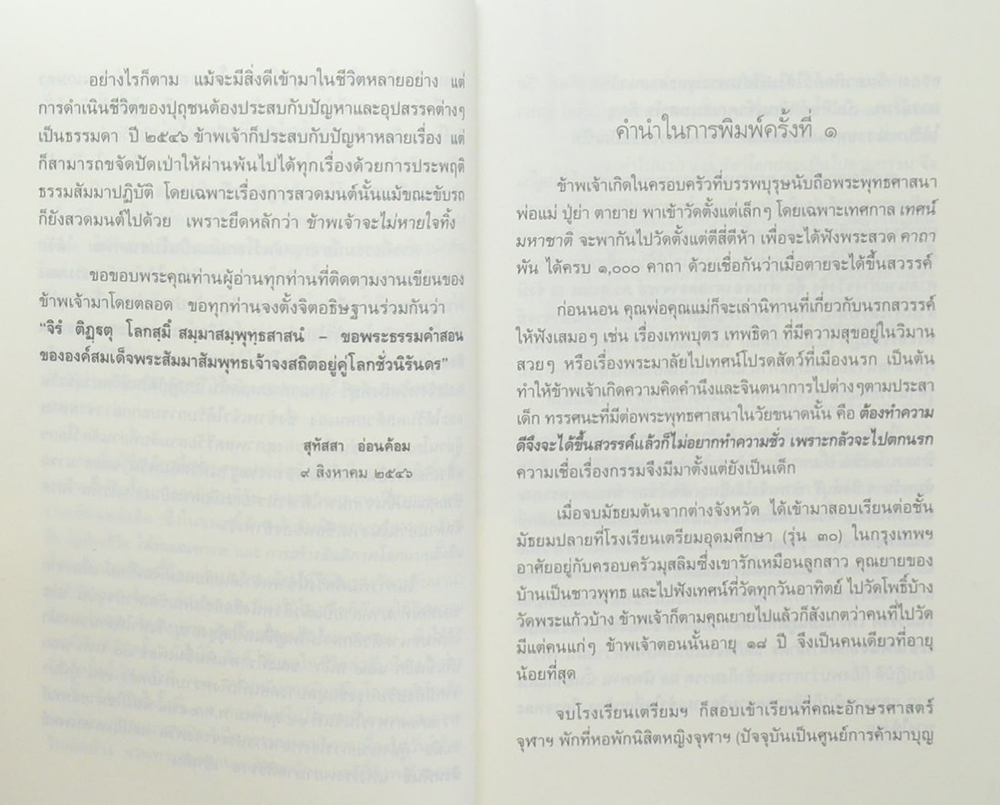 อย่างไรก็ตาม แม้จะมีสิ่งดีเข้ามาในชีวิตหลายอย่าง แต่
การดำเนินชีวิตของปุถุชนต้องประสบกับปัญหาและอุปสรรคต่างๆ
เป็นธรรมดา ปี ๒๕๔๖ ข้าพเจ้าก็ประสบกับปัญหาหลายเรื่อง แต่
ก็สามารถขจัดปัดเป่าให้ผ่านพ้นไปได้ทุกเรื่องด้วยการประพฤติ
ธรรมสัมมาปฏิบัติ โดยเฉพาะเรื่องการสวดมนต์นั้นแม้ขณะขับรถ
ก็ยังสวดมนต์ไปด้วย เพราะยึดหลักว่า ข้าพเจ้าจะไม่หายใจทิ้ง
ขอขอบพระคุณท่านผู้อ่านทุกท่านที่ติดตามงานเขียนของ
ข้าพเจ้ามาโดยตลอด ขอทุกท่านจงตั้งจิตอธิษฐานร่วมกันว่า
"จิรํ ติฏฺฐตุ โลกสฺมึ สมฺมาสมฺพุทฺธสาสนํ – ขอพระธรรมคำสอน
ขององค์สมเด็จพระสัมมาสัมพุทธเจ้าจงสถิตอยู่คู่โลกชั่วนิรันดร"
สุทัสสา อ่อนค้อม
๙ สิงหาคม ๒๕๔๖
คำนำในการพิมพ์ครั้งที่ ๑
ข้าพเจ้าเกิดในครอบครัวที่บรรพบุรุษนับถือพระพุทธศาสนา
พ่อแม่ ปู่ย่า ตายาย พาเข้าวัดตั้งแต่เล็กๆ โดยเฉพาะเทศกาล เทศน์
มหาชาติ จะพากันไปวัดตั้งแต่ตีสี่ตีห้า เพื่อจะได้ฟังพระสวด คาถา
พัน ได้ครบ ๑,๐๐๐ คาถา ด้วยเชื่อกันว่าเมื่อตายจะได้ขึ้นสวรรค์
ก่อนนอน คุณพ่อคุณแม่ก็จะเล่านิทานที่เกี่ยวกับนรกสวรรค์
ให้ฟังเสมอๆ เช่น เรื่องเทพบุตร เทพธิดา ที่มีความสุขอยู่ในวิมาน
สวยๆ หรือเรื่องพระมาลัยไปเทศน์โปรดสัตว์ที่เมืองนรก เป็นต้น
ทำให้ข้าพเจ้าเกิดความคิดคำนึงและจินตนาการไปต่างๆตามประสา
เด็ก ทรรศนะที่มีต่อพระพุทธศาสนาในวัยขนาดนั้น คือ ต้องทำความ
ดีจึงจะได้ขึ้นสวรรค์แล้วก็ไม่อยากทำความชั่ว เพราะกลัวจะไปตกนรก
ความเชื่อเรื่องกรรมจึงมีมาตั้งแต่ยังเป็นเด็ก
เมื่อจบมัธยมต้นจากต่างจังหวัด ได้เข้ามาสอบเรียนต่อชั้น
มัธยมปลายที่โรงเรียนเตรียมอุดมศึกษา (รุ่น ๓๐) ในกรุงเทพฯ
อาศัยอยู่กับครอบครัวมุสลิมซึ่งเขารักเหมือนลูกสาว คุณยายของ
บ้านเป็นชาวพุทธ และไปฟังเทศน์ที่วัดทุกวันอาทิตย์ ไปวัดโพธิ์บ้าง
วัดพระแก้วบ้าง ข้าพเจ้าก็ตามคุณยายไปแล้วก็สังเกตว่าคนที่ไปวัด
มีแต่คนแก่ๆ ข้าพเจ้าตอนนั้นอายุ ๑๘ ปี จึงเป็นคนเดียวที่อายุ
น้อยที่สุด
จบโรงเรียนเตรียมฯ ก็สอบเข้าเรียนที่คณะอักษรศาสตร์
จุฬาฯ พักที่หอพักนิสิตหญิงจุฬาฯ (ปัจจุบันเป็นศูนย์การค้ามาบุญ